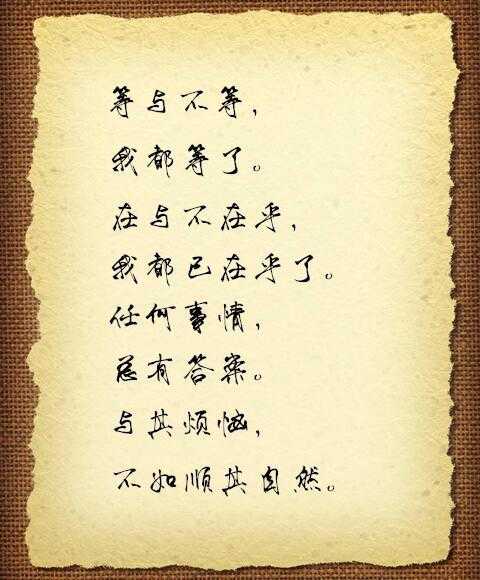 等与不等，
我都等了。
在与不在乎，
我都已在乎了。
任何事情，
总有答案。
与其烦恼，
不如顺其自然。